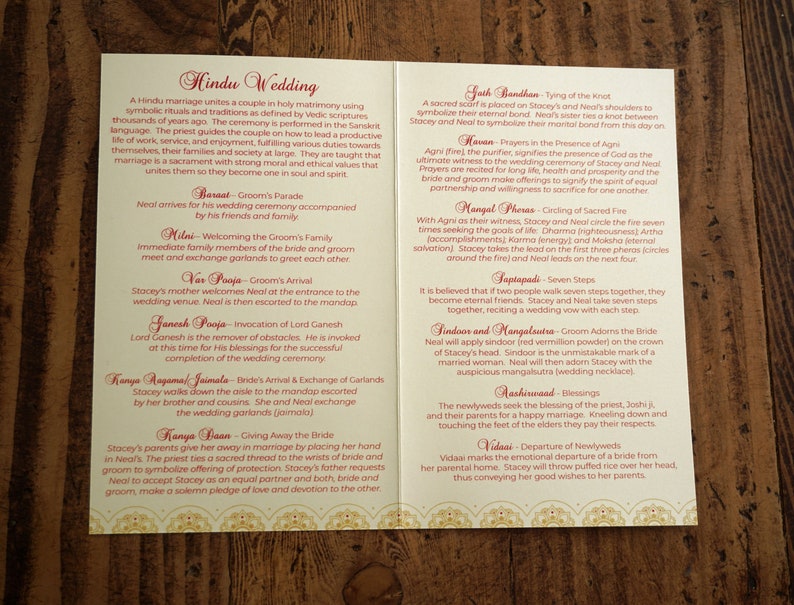 Hindu Wedding
A Hindu marriage unites a couple in holy matrimony using
symbolic rituals and traditions as defined by Vedic scriptures
thousands of years ago. The ceremony is performed in the Sanskrit
language. The priest guides the couple on how to lead a productive
life of work, service, and enjoyment, fulfilling various duties towards
themselves, their families and society at large. They are taught that
marriage is a sacrament with strong moral and ethical values that
unites them so they become one in soul and spirit.
Baraat– Groom's Parade
Neal arrives for his wedding ceremony accompanied
by his friends and family.
Milni– Welcoming the Groom's Family
Immediate family members of the bride and groom
meet and exchange garlands to greet each other.
Var Pooja – Groom's Arrival
Stacey's mother welcomes Neal at the entrance to the
wedding venue. Neal is then escorted to the mandap.
Ganesh Pooja– Invocation of Lord Ganesh
Lord Ganesh is the remover of obstacles. He is invoked
at this time for His blessings for the successful
completion of the wedding ceremony.
Kanya Aagama/Jaimala– Bride's Arrival & Exchange of Garlands
Stacey walks down the aisle to the mandap escorted
by her brother and cousins. She and Neal exchange
the wedding garlands (jaimala).
Kanya Daan – Giving Away the Bride
Stacey's parents give her away in marriage by placing her hand
in Neal's. The priest ties a sacred thread to the wrists of bride and
groom to symbolize offering of protection. Stacey's father requests
Neal to accept Stacey as an equal partner and both, bride and
groom, make a solemn pledge of love and devotion to the other.
Gath Bandhan - Tying of the Knot
A sacred scarf is placed on Stacey's and Neal's shoulders to
symbolize their eternal bond. Neal's sister ties a knot between
Stacey and Neal to symbolize their marital bond from this day on.
Havan– Prayers in the Presence of Agni
Agni (fire), the purifier, signifies the presence of God as the
ultimate witness to the wedding ceremony of Stacey and Neal.
Prayers are recited for long life, health and prosperity and the
bride and groom make offerings to signify the spirit of equal
partnership and willingness to sacrifice for one another.
Mangal Pheras - Circling of Sacred Fire
With Agni as their witness, Stacey and Neal circle the fire seven
times seeking the goals of life: Dharma (righteousness); Artha
(accomplishments); Karma (energy); and Moksha (eternal
salvation). Stacey takes the lead on the first three pheras (circles
around the fire) and Neal leads on the next four.
Saptapadi – Seven Steps
It is believed that if two people walk seven steps together, they
become eternal friends. Stacey and Neal take seven steps
together, reciting a wedding vow with each step.
Sindoor and Mangalsutra– Groom Adorns the Bride
Neal will apply sindoor (red vermillion powder) on the crown
of Stacey's head. Sindoor is the unmistakable mark of a
married woman. Neal will then adorn Stacey with the
auspicious mangalsutra (wedding necklace).
Aashirwaad – Blessings
The newlyweds seek the blessing of the priest, Joshi ji,
and their parents for a happy marriage. Kneeling down and
touching the feet of the elders they pay their respects.
Vidaai - Departure of Newlyweds
Vidaai marks the emotional departure of a bride from
her parental home. Stacey will throw puffed rice over her head,
thus conveying her good wishes to her parents.